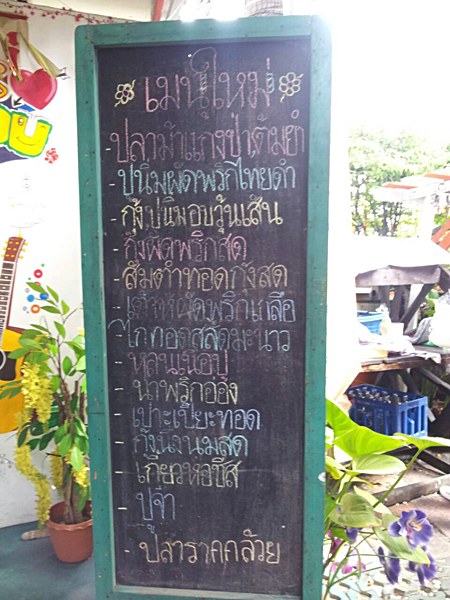 เมนูใหม่
- ปลาม้าแกงป่าต้มยำ
- ปูนิ่มผัดพริกไทยดำ
- กุ้ง,ปูนิ่มอบวุ้นเส้น
- กุ้งผัดพริกสด
- ส้มตำทอดกุ้งสด
- เต้าหู้ผัดพริกเกลือ
- ไก่ทอดรสมะนาว
- หลนเนื้อปู
- น้ำพริกอ่อง
- เปาะเปี๊ยะทอด
- กุ้งนึ่งนมสด
- เกี๊ยวห่อชีส
- ปูจ๋า
- ปลาราดกล้วย